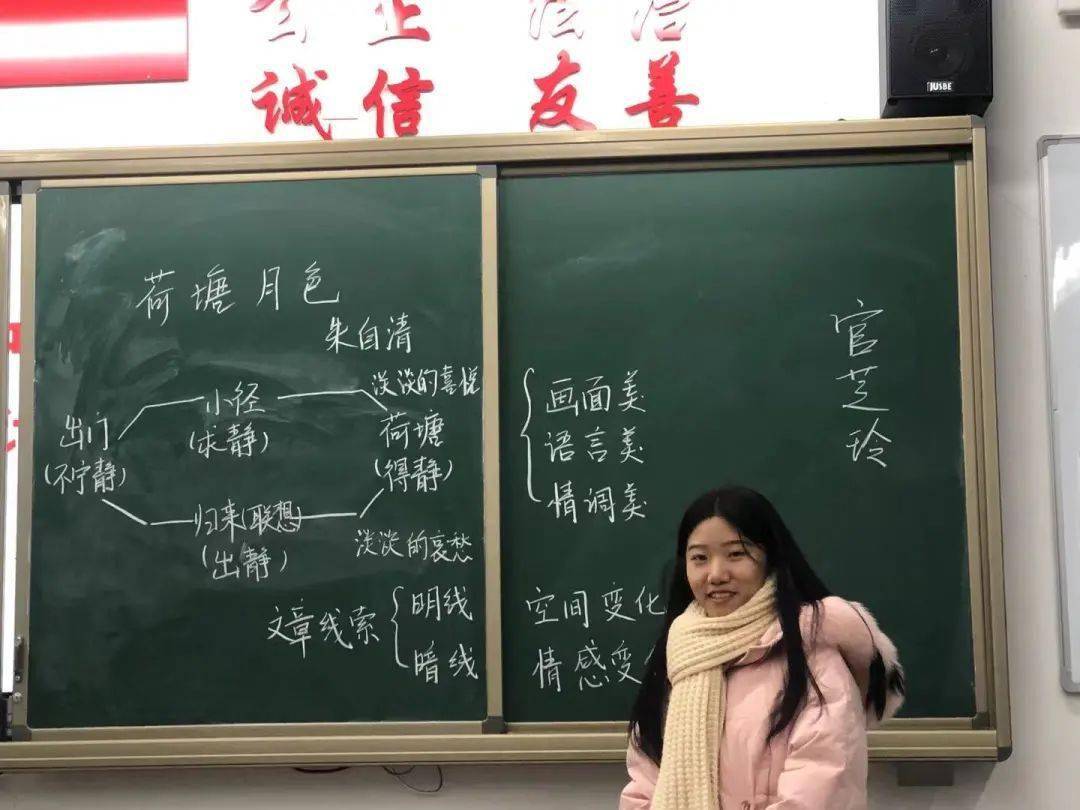 公正 法治
诚信 友善
JUSBE
荷塘月色
朱自清
淡淡的喜悦
小径
(求静)
出门
(不宁静)
荷塘
(得静)
归来(联想)
(出静)
淡淡的哀愁
文章线索
明线
暗线
画面美
语言美
情调美
空间变化
情感变
官芝玲